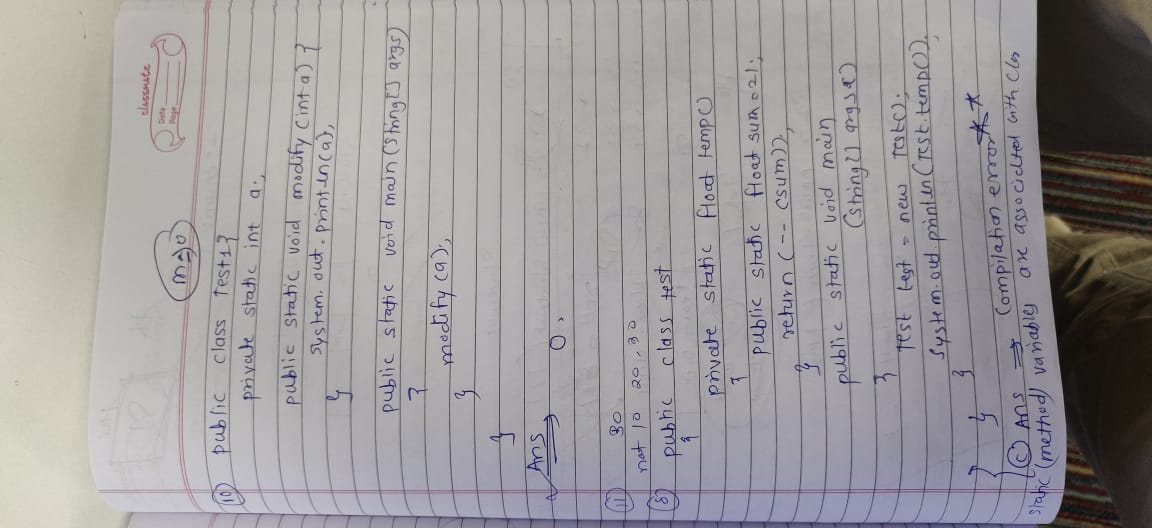 classmate
Date
Page
(10) public class Test1 {
private static int a;
public static void modify (int a) {
System.out.println(a);
}
public static void main (String[] args)
{
modify(a);
}
}
Ans 0,
(11) 30
not 10 20, 30
(8) public class test
{
private static float temp()
{
public static float sum = 21;
return (-- (sum));
}
public static void main
(String[] args)
{
Test test = new Test();
System.out.println(Test.temp());
}
}
(C) Ans ⇒ Compilation error
static (method) variables are associated with Class